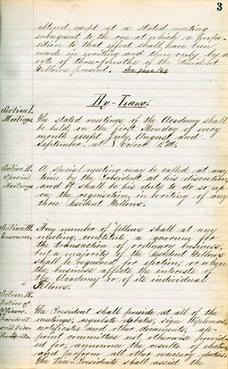 3
altered, except at a stated meeting
subsequent to the one at which a propo-
sition to that effect shall have been
made in writing and then only by a
vote of three-fourths of the Resident
Fellows present. See page 146
By-Laws.
Section I.
Meetings.
The stated meetings of the Academy shall
be held on the first Monday of every
month except July, August and
September, at 8 o'clock P.M.
Section II.
Special
Meetings
A special meeting may be called at any
time by the President at his discretion
and it shall be his duty to do so up
on the requisition in writing of any
three Resident Fellows.
Section III.
Quorum.
Any number of Fellows shall at any
meeting, constitute a quorum for
the transaction of ordinary business,
but a majority of the Resident Fellows
shall be required for election, or when
the business affects the interests
of the Academy or of its individual
Fellows.
Section IV.
Duties of
Officers.
President
and Vice
The President shall preside at all of the
meetings, regulate debates, sign Diplomas,
certificates and other documents, ap-
point committees not otherwise provid-
ed for, announce the results of elections
and perform all other necessary duties.
The Vice-Presidents shall assist the